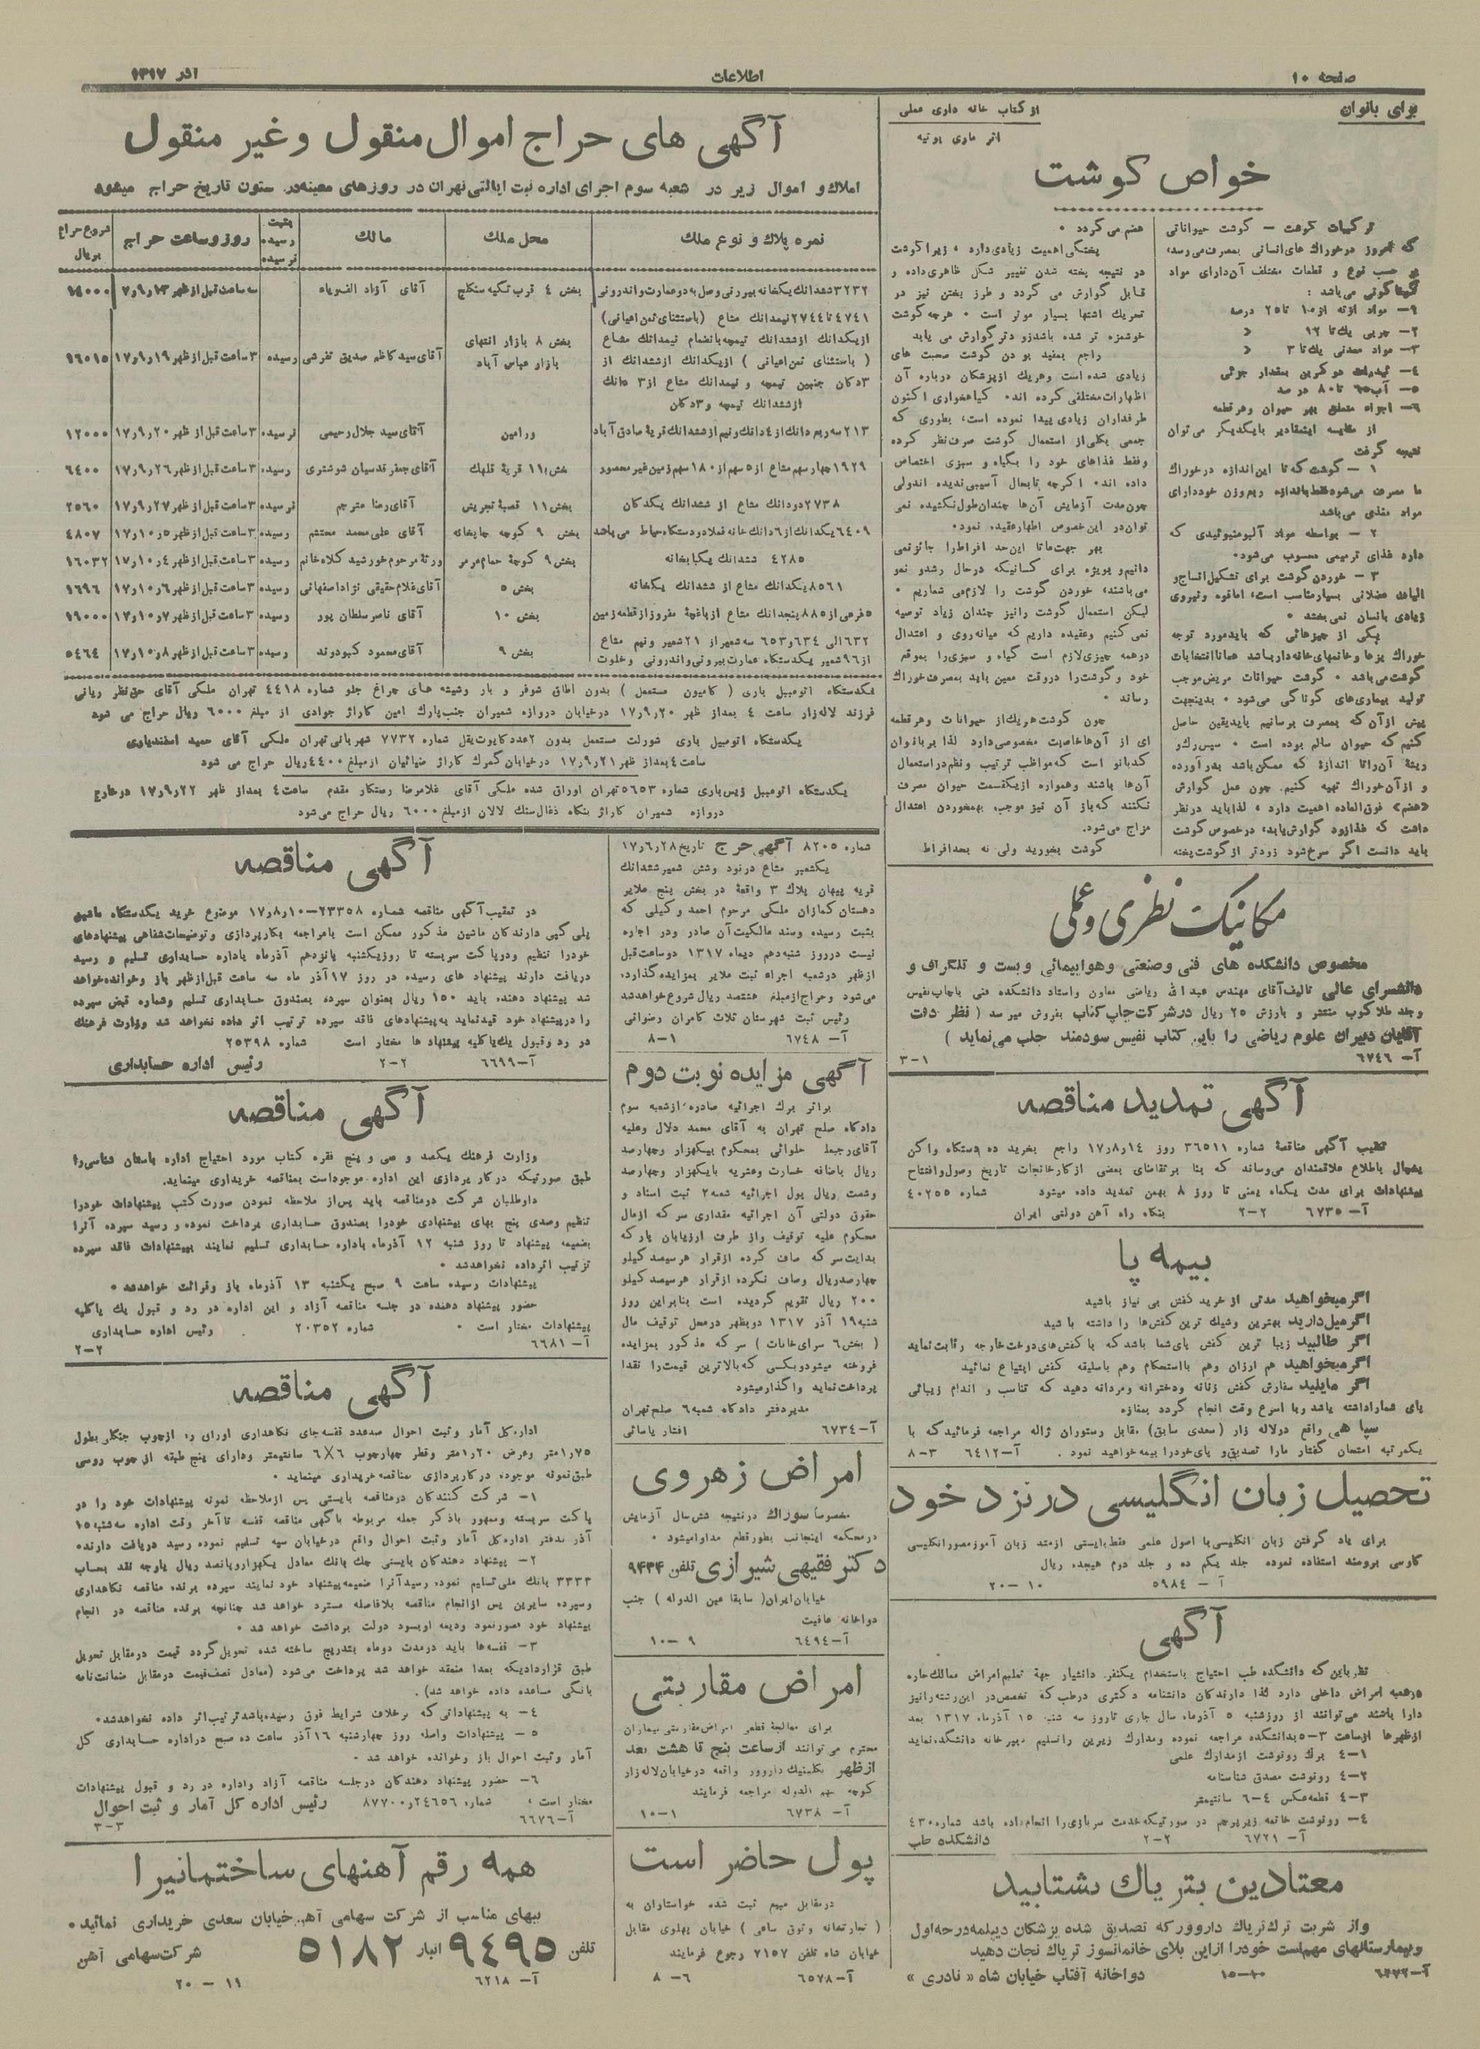 صفحه ۱۰
اطلاعات
آذر ۱۳۱۷
برای بانوان
از کتاب خانه داری عملی
اثر ماری بوتیه
خواص گوشت
ترکیبات گوشت – گوشت حیواناتی
که امروز در خوراک های انسانی بمصرف می‌رسد،
بر حسب نوع و قطعات مختلف آن دارای مواد
گوناگونی می‌باشد :
۱– مواد ازته از ۱۰ تا ۲۵ درصد
۲– چربی یک تا ۱۲ »
۳– مواد معدنی یک تا ۳ »
۵– آب ۶۵ تا ۸۰ در صد
۶– اجزاء متعلق بهر حیوان و هر قطعه
از مقایسه این مقادیر با یکدیگر می توان
نتیجه گرفت
۱ – گوشت که تا این اندازه در خوراک
ما مصرف می‌شود فقط باندازه ربع وزن خود دارای
مواد مغذی می‌باشد
۲ – بواسطه مواد آلبومنیوئیدی که
دارد غذای ترمیمی محسوب می شود.
۳ – خوردن گوشت برای تشکیل انساج و
الیاف عضلانی بسیار مناسب است، اما قوه و نیروی
زیادی بانسان نمی بخشد .
یکی از چیزهائی که باید مورد توجه
خوراک پزها و خانمهای خانه دار باشد همانا انتخاب
گوشت می‌باشد . گوشت حیوانات مریض موجب
تولید بیماری‌های گوناگونی می‌شود . بدینجهت
پیش از آن که بمصرف برسانیم باید یقین حاصل
کنیم که حیوان سالم بوده است . سپس رگ و
ریشهٔ آن را تا اندازهٔ که ممکن باشد بدر آورده
و از آن خوراک تهیه کنیم. چون عمل گوارش
«هضم» فوق‌العاده اهمیت دارد ، لذا باید در نظر
داشت که غذا زود گوارش یابد، در خصوص گوشت
باید دانست اگر سرخ شود زودتر از گوشت پخته
هضم می گردد .
پختگی اهمیت زیادی دارد ، زیرا گوشت
در نتیجه پخته شدن تغییر شکل ظاهری داده و
قابل گوارش می گردد و طرز پختن نیز در
تحریک اشتها بسیار موثر است . هرچه گوشت
خوشمزه تر شده باشد زودتر گوارش می یابد
راجع بمفید بودن گوشت صحبت های
زیادی شده است و هریک از پزشکان درباره آن
اظهارات مختلفی کرده اند. گیاهخواری اکنون
طرفداران زیادی پیدا نموده است، بطوری که
جمعی بکلی از استعمال گوشت صرف‌نظر کرده
و فقط غذاهای خود را بگیاه و سبزی اختصاص
داده اند. اگرچه تابحال آسیبی ندیده اند ولی
چون مدت آزمایش آن‌ها چندان طول نکشیده نمی
توان در این خصوص اظهار عقیده نمود.
بهر جهت ما تا این حد افراط را جائز نمی
دانیم و بویژه برای کسانیکه در حال رشد و نمو
می‌باشند، خوردن گوشت را لازم می شماریم .
لیکن استعمال گوشت را نیز چندان زیاد توصیه
نمی کنیم و عقیده داریم که میانه‌روی و اعتدال
در همه چیزی لازم است گیاه و سبزی را بموقع
خود و گوشت را در وقت معین باید بمصرف خوراک
رساند .
چون گوشت هریک از حیوانات و هر قطعه
ای از آن‌ها خاصیت مخصوصی دارد لذا بر بانوان
کدبانو است که مواظب ترتیب و نظم در استعمال
آن‌ها باشند و همواره از یکقسمت حیوان مصرف
نکنند که باز آن نیز موجب بهم‌خوردن اعتدال
مزاج می‌شود.
گوشت بخورید ولی نه بحد افراط
مکانیک نظری و عملی
مخصوص دانشکده های فنی و صنعتی و هواپیمائی و پست و تلگراف و
دانشسرای عالی تالیف آقای مهندس عبدالله ریاضی معاون و استاد دانشکده فنی با چاپ نفیس
و جلد طلاکوب منتشر و بارزش ۲۵ ریال در شرکت چاپ کتاب بفروش میرسد ( نظر دقت
آقایان دبیران علوم ریاضی را باین کتاب نفیس سودمند جلب می نماید )
آ– ۶۷۴۶ ۱–۳
آگهی تمدید مناقصه
تعقیب آگهی مناقصهٔ شماره ۳۶۵۱۱ روز ۱۷٫۸٫۱۴ راجع بخرید ده دستگاه واگن
یخچال باطلاع علاقمندان می‌رساند که بنا بر تقاضای بعضی از کارخانجات تاریخ وصول و افتتاح
پیشنهادات برای مدت یکماه یعنی تا روز ۸ بهمن تمدید داده میشود شماره ۴۰۲۵۵
آ– ۶۷۳۵ ۲–۲ بنگاه راه آهن دولتی ایران
بیمه پا
اگر میخواهید مدتی از خرید کفش بی نیاز باشید
اگر میل دارید بهترین و شیک ترین کفش‌ها را داشته باشید
اگر طالبید زیبا ترین کفش پای شما باشد که با کفش‌های دوخت خارجه رقابت نماید
اگر میخواهید هم ارزان و هم با استحکام و هم با سلیقه کفش ابتیاع نمائید
اگر مایلید سفارش کفش زنانه و دخترانه و مردانه دهید که تناسب و اندام زیبائی
پای شما را داشته باشد و با اسرع وقت انجام گردد بمغازه
واقع در لاله زار (سعدی سابق) مقابل رستوران ژاله مراجعه فرمائید که با
یکمرتبه امتحان گفتار ما را تصدیق و پای خود را بیمه خواهید نمود . آ–۶۴۱۲ ۳–۸
تحصیل زبان انگلیسی در نزد خود
برای یاد گرفتن زبان انگلیسی با اصول علمی فقط بایستی از متد زبان آموز مصور انگلیسی
کاوسی برومند استفاده نموده جلد یکم ده و جلد دوم هیجده ریال
آ – ۵۹۸۴ ۱۰ –۲۰
آگهی
نظر باین که دانشکده طب احتیاج باستخدام یکنفر دانشیار جهة تعلیم امراض ممالک حاره
در شعبه امراض داخلی دارد لذا دارندگان دانشنامه دکتری در طب که تخصص در این رشته را نیز
دارا باشند می‌توانند از روز شنبه ۵ آذرماه سال جاری تا روز سه شنبه ۱۵ آذرماه ۱۳۱۷ بعد
از ظهرها از ساعت ۳–۵ بدانشکده مراجعه نموده و مدارک زیرین را تسلیم دبیرخانه دانشکده نمایند
۱–۴ برگ رونوشت از مدارک علمی
۲–۴ رونوشت مصدق شناسنامه
۳–۴ قطعه عکس ۴–۶ سانتیمتر
۴– رونوشت خاتمه زیر پرچم در صورتیکه خدمت سربازی را انجام داده باشد شماره ۴۳۰
آ– ۶۷۲۱ ۲–۲ دانشکده طب
معتادین بتریاک بشتابید
و از شربت ترک تریاک داروور که تصدیق شده پزشکان دیپلمه درجه اول
و بیمارستانهای مهم است خود را از این بلای خانمانسوز تریاک نجات دهید
آ–۶۴۷۲ ۱۰–۱۵ دواخانه آفتاب خیابان شاه « نادری »
آگهی های حراج اموال منقول و غیر منقول
املاک و اموال زیر در شعبه سوم اجرای اداره ثبت ایالتی تهران در روزهای معینه در ستون تاریخ حراج میشود
نمره پلاک و نوع ملک | محل ملک | مالک | بثبت رسیده نرسیده | روز و ساعت حراج | شروع حراج بریال
۳۲۳۲ ششدانگ یکخانه بیرونی وصل به دو عمارت و اندرونی | بخش ۴ قرب تکیه سنگلج | آقای آزاد | سه ساعت قبل از ظهر ۱۷٫۹٫۱۳ | ۱۴۰۰۰
۲۷۴۱ تا ۲۷۴۴ نیمدانگ مشاع (باستثنای ثمن اعیانی)
از یکدانگ از ششدانگ تیمچه بانضمام نیمدانگ مشاع
( باستثنای ثمن اعیانی ) از یکدانگ از ششدانگ از
۳ دکان جنبین تیمچه و نیمدانگ مشاع از ۳ دانگ
از ششدانگ تیمچه و ۳ دکان | بخش ۸ بازار انتهای بازار عباس آباد | آقای سید کاظم صدیق تفرشی | رسیده | ۳ ساعت قبل از ظهر ۱۷٫۹٫۱۹ | ۱۶۰۱۵
۲۱۳ سه ربع دانگ از ۴ دانگ و نیم از ششدانگ قریهٔ صادق آباد | ورامین | آقای سید جلال رحیمی | نرسیده | ۳ ساعت قبل از ظهر ۱۷٫۹٫۲۰ | ۱۲۰۰۰
۱۹۲۹ چهار سهم مشاع از ۵ سهم از ۱۸۰ سهم زمین غیر محصور | بخش ۱۱ قریهٔ قلهک | آقای جعفر قدسیان شوشتری | رسیده | ۳ ساعت قبل از ظهر ۱۷٫۹٫۲۶ | ۶۴۰۰
۲۷۳۸ دو دانگ مشاع از ششدانگ یکدکان | بخش ۱۱ قصبهٔ تجریش | آقای رضا مترجم | نرسیده | ۳ ساعت قبل از ظهر ۱۷٫۹٫۲۷ | ۲۵۶۰
۶۴۰۹ یکدانگ از ۶ دانگ خانه فعلا دو دستگاه حیاط می باشد | بخش ۹ کوچه چاپخانه | آقای علی محمد محتشم | رسیده | ۳ ساعت قبل از ظهر ۱۷٫۱۰٫۵ | ۴۸۰۷
۴۲۸۵ ششدانگ یکبابخانه | بخش ۹ کوچهٔ حمام مرمر | ورثهٔ مرحوم خورشید کلاه خانم | رسیده | ۳ ساعت قبل از ظهر ۱۷٫۱۰٫۴ | ۱۶۰۳۲
۸۵۶۱ یکدانگ مشاع از ششدانگ یکخانه | بخش ۵ | آقای غلام حقیقی نژاد اصفهانی | رسیده | ۳ ساعت قبل از ظهر ۱۷٫۱۰٫۶ | ۱۶۹۶
۵ فرعی از ۸۸۵ پنجدانگ مشاع از باغچهٔ مفروز از قطعه زمین | بخش ۱۰ | آقای ناصر سلطان پور | رسیده | ۳ ساعت قبل از ظهر ۱۷٫۱۰٫۷ | ۱۹۰۰۰
۶۳۲ الی ۶۳۴ و ۶۵۳ سه شعیر از ۲۱ شعیر و نیم مشاع
از ۹۶ شعیر یکدستگاه عمارت بیرونی و اندرونی و خلوت | بخش ۹ | آقای محمود کبودوند | رسیده | ۳ ساعت قبل از ظهر ۱۷٫۱۰٫۸ | ۵۴۶۴
یکدستگاه اتومبیل باری ( کامیون مستعمل ) بدون اطاق شوفر و بار و شیشه های چراغ جلو شماره ۴۴۱۸ تهران ملکی آقای حق نظر ربانی
فرزند لاله زار ساعت ۴ بعد از ظهر ۱۷٫۹٫۲۰ در خیابان دروازه شمیران جنب پارک امین گاراژ جوادی از مبلغ ۶۰۰۰ ریال حراج می شود
یکدستگاه اتومبیل باری شورلت مستعمل بدون ۲ عدد کاپوت بغل شماره ۷۷۳۲ شهربانی تهران ملکی آقای حمید اسفندیاری
ساعت ۴ بعد از ظهر ۱۷٫۹٫۲۱ در خیابان گمرک گاراژ ضیائیان از مبلغ ۴۴۰۰ ریال حراج می شود
یکدستگاه اتومبیل زیس باری شماره ۵۶۵۳ تهران اوراق شده ملکی آقای غلامرضا رستگار مقدم ساعت ۴ بعد از ظهر ۱۷٫۹٫۲۲ در خارج
دروازه شمیران گاراژ بنگاه ذغال سنگ لالان از مبلغ ۶۰۰۰ ریال حراج می شود
شماره ۸۲۰۵ آگهی حرج تاریخ ۱۷٫۶٫۲۸
یکشعیر مشاع در نود و شش شعیر ششدانگ
قریه پیهان پلاک ۳ واقعهٔ در بخش پنج ملایر
دهستان کمازان ملکی مرحوم احمد وکیلی که
بثبت رسیده و سند مالکیت آن صادر و در اجاره
نیست در روز شنبه دهم دیماه ۱۳۱۷ دو ساعت قبل
از ظهر در شعبه اجراء ثبت ملایر بمزایده گذارده
می‌شود و حراج از مبلغ هشتصد ریال شروع خواهد شد
رئیس ثبت شهرستان ثلاث کامران رضوانی
آ– ۶۷۴۸ ۱–۸
آگهی مزایده نوبت دوم
براثر برگ اجرائیه صادره از شعبه سوم
دادگاه صلح تهران به آقای محمد دلال و علیه
آقای رجبعلی حلوائی بمحکوم بیکهزار و چهارصد
ریال باضافه خسارت و عشریه بایکهزار و چهارصد
و شصت ریال پول اجرائیه شعبه ۲ ثبت اسناد و
حقوق دولتی آن اجرائیه مقداری سرکه از مال
محکوم علیه توقیف و از طرف ارزیابان پارکه
بدایت سرکه صاف کرده از قرار هر سیصد کیلو
چهارصد ریال و صاف نکرده از قرار هر سیصد کیلو
۲۰۰ ریال تقویم گردیده است بنابراین روز
شنبه ۱۹ آذر ۱۳۱۷ دو بظهر در محل توقیف مال
( بخش ۶ سرای خانات ) سرکه مذکور بمزایده
فروخته میشود و بکسی که بالاترین قیمت را نقدا
پرداخت نماید واگذار میشود
مدیر دفتر دادگاه شعبه ۶ صلح تهران
آ–۶۷۳۴
امراض زهروی
مخصوصا سوزاک در نتیجه شش سال آزمایش
در محکمه اینجانب بطور قطع مداوا میشود .
دکتر فقیهی شیرازی تلفن ۹۴۳۴
خیابان ایران( سابقا عین الدوله ) جنب
دواخانه عافیت
آ–۶۴۹۴ ۹ –۱۰
امراض مقاربتی
برای معالجهٔ قطعی امراض مقاربتی بیماران
محترم می‌توانند از ساعت پنج تا هشت بعد
از ظهر بکلینیک داروور واقعه در خیابان لاله زار
کوچه مهر الدوله مراجعه فرمایند
آ– ۶۷۳۸ ۱–۱۰
پول حاضر است
در مقابل مبیع ثبت شده خواستاران به
( تجارتخانه وثوق ساعی ) خیابان پهلوی مقابل
خیابان شاه تلفن ۷۱۵۷ رجوع فرمایند
آ– ۶۵۷۸ ۶– ۸
آگهی مناقصه
در تعقیب آگهی مناقصه شماره ۲۳۳۵۸–۱۷٫۸٫۱۰ موضوع خرید یکدستگاه ماشین
پلی کپی دارندگان ماشین مذکور ممکن است با مراجعه بکارپردازی و توضیحات شفاهی پیشنهادهای
خود را تنظیم و در پاکت سربسته تا روز یکشنبه پانزدهم آذرماه باداره حسابداری تسلیم و رسید
دریافت دارند پیشنهاد های رسیده در روز ۱۷ آذر ماه سه ساعت قبل از ظهر باز و خوانده خواهد
شد پیشنهاد دهنده باید ۱۵۰ ریال بعنوان سپرده بصندوق حسابداری تسلیم و شماره قبض سپرده
را در پیشنهاد خود قید نماید به پیشنهادهای فاقد سپرده ترتیب اثر داده نخواهد شد وزارت فرهنگ
در رد و قبول یک یا کلیه پیشنهاد ها مختار است شماره ۲۵۳۹۸
آ–۶۶۹۹ ۲–۲ رئیس اداره حسابداری
آگهی مناقصه
وزارت فرهنگ یکصد و سی و پنج فقره کتاب مورد احتیاج اداره باستان شناسی را
طبق صورتیکه در کارپردازی این اداره موجود است بمناقصه خریداری مینماید.
داوطلبان شرکت در مناقصه باید پس از ملاحظه نمودن صورت کتب پیشنهادات خود را
تنظیم و صدی پنج بهای پیشنهادی خود را بصندوق حسابداری پرداخت نموده و رسید سپرده آنرا
بضمیمه پیشنهاد تا روز شنبه ۱۲ آذرماه باداره حسابداری تسلیم نمایند بپیشنهادات فاقد سپرده
ترتیب اثر داده نخواهد شد .
پیشنهادات رسیده ساعت ۹ صبح یکشنبه ۱۳ آذرماه باز و قرائت خواهد شد .
حضور پیشنهاد دهنده در جلسه مناقصه آزاد و این اداره در رد و قبول یک یا کلیه
پیشنهادات مختار است . شماره ۲۰۳۵۲ رئیس اداره حسابداری
آ–۶۶۸۱ ۲–۲
آگهی مناقصه
اداره کل آمار و ثبت احوال صد عدد قفسه جای نگاهداری اوراق را از چوب جنگلی بطول
۱٫۷۵ متر و عرض ۱٫۲۰ متر و قطر چهارچوب ۶X۶ سانتیمتر و دارای پنج طبقه از چوب روسی
طبق نمونه موجود در کارپردازی بمناقصه خریداری مینماید .
۱– شرکت کنندگان در مناقصه بایستی پس از ملاحظه نمونه پیشنهادات خود را در
پاکت سربسته و ممهور با ذکر جمله مربوطه بآگهی مناقصه قفسه تا آخر وقت اداره سه شنبه ۱۵
آذر بدفتر اداره کل آمار و ثبت احوال واقع در خیابان سپه تسلیم نموده رسید دریافت دارند.
۲– پیشنهاد دهندگان بایستی چک بانک معادل یکهزار و پانصد ریال یا وجه نقد بحساب
۳۳۳۳ بانک ملی تسلیم نموده رسید آنرا ضمیمه پیشنهاد خود نمایند سپرده برنده مناقصه نگاهداری
و سپرده سایرین پس از انجام مناقصه بلافاصله مسترد خواهد شد چنانچه برنده مناقصه در انجام
پیشنهاد خود قصور نمود ودیعه او بسود دولت برداشت خواهد شد .
۳– قفسه‌ها باید در مدت دو ماه بتدریج ساخته شده تحویل گردد قیمت در مقابل تحویل
طبق قراردادیکه بعدا منعقد خواهد شد پرداخت می‌شود (معادل نصف قیمت در مقابل ضمانت‌نامه
بانکی مساعده داده خواهد شد) .
۴– به پیشنهاداتی که برخلاف شرایط فوق رسیده باشد ترتیب اثر داده نخواهد شد.
۵ – پیشنهادات واصله روز چهارشنبه ۱۶ آذر ساعت ده صبح در اداره حسابداری کل
آمار و ثبت احوال باز و خوانده خواهد شد .
۶– حضور پیشنهاد دهندگان در جلسه مناقصه آزاد و اداره در رد و قبول پیشنهادات
مختار است . شماره ۲۴۶۵۶ر۸۷۷۰۰ رئیس اداره کل آمار و ثبت احوال
آ–۶۶۷۶ ۳–۳
همه رقم آهنهای ساختمانیرا
ببهای مناسب از شرکت سهامی آهن خیابان سعدی خریداری نمائید .
تلفن ۹۴۹۵ انبار ۵۱۸۲ شرکت سهامی آهن
آ– ۶۲۱۸ ۱۱ – ۲۰